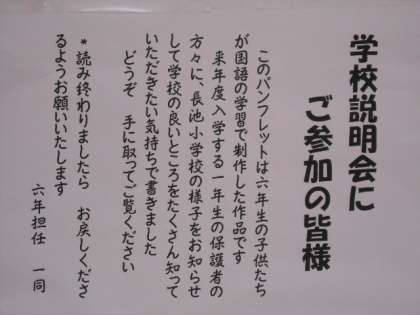 学校説明会に
ご参加の皆様
このパンフレットは六年生の子供たち
が国語の学習で制作した作品です
来年度入学する一年生の保護者の
方々に、長池小学校の様子をお知らせ
して学校の良いところをたくさん知って
いただきたい気持ちで書きました
どうぞ 手に取ってご覧ください
*読み終わりましたら お戻しくださ
るようお願いいたします
六年担任 一同